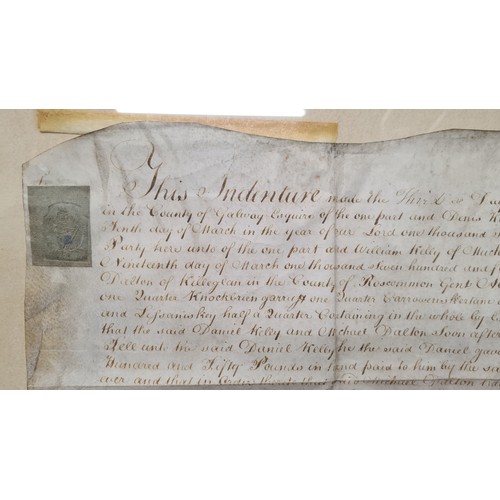 This Indenture made the Third
In the County of Galway Esquire of the one part and Denis
Tenth day of March in the year of our Lord one thousand
Party here unto of the one part and William Kelly of Much
Nineteenth day of March one thousand seven hundred and
Dalton of in the County of Roscommon Gent
one Quarter one Quarter
and half a Quarter Containing in the whole by
that the said Daniel Kelly and Michael Dalton Soon after
Sell unto the said Daniel Kelly he the said Daniel
Hundred and Fifty Pounds in hand paid to him by the
ever and that in Order Michael Dalton